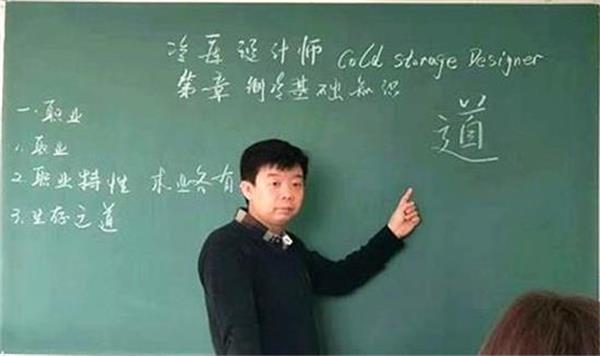 冷库设计师 Cold Storage Designer
第章 制冷基础知识
一.职业
1.职业
2.职业特性 术业各有
3.生存之道
道